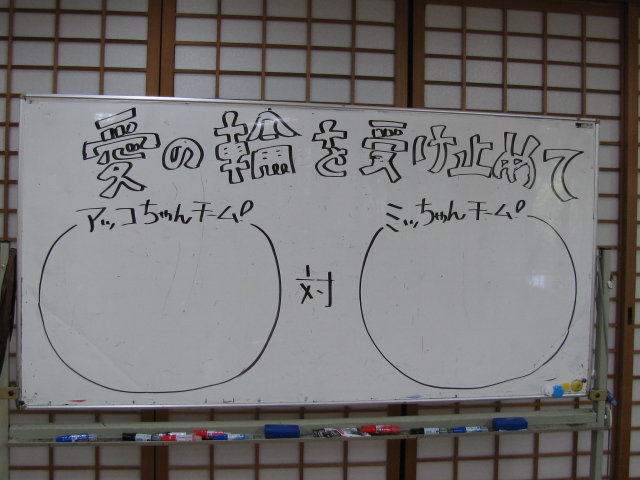 愛の輪を受け止めて
アッコちゃんチーム!
対
ミッちゃんチーム!